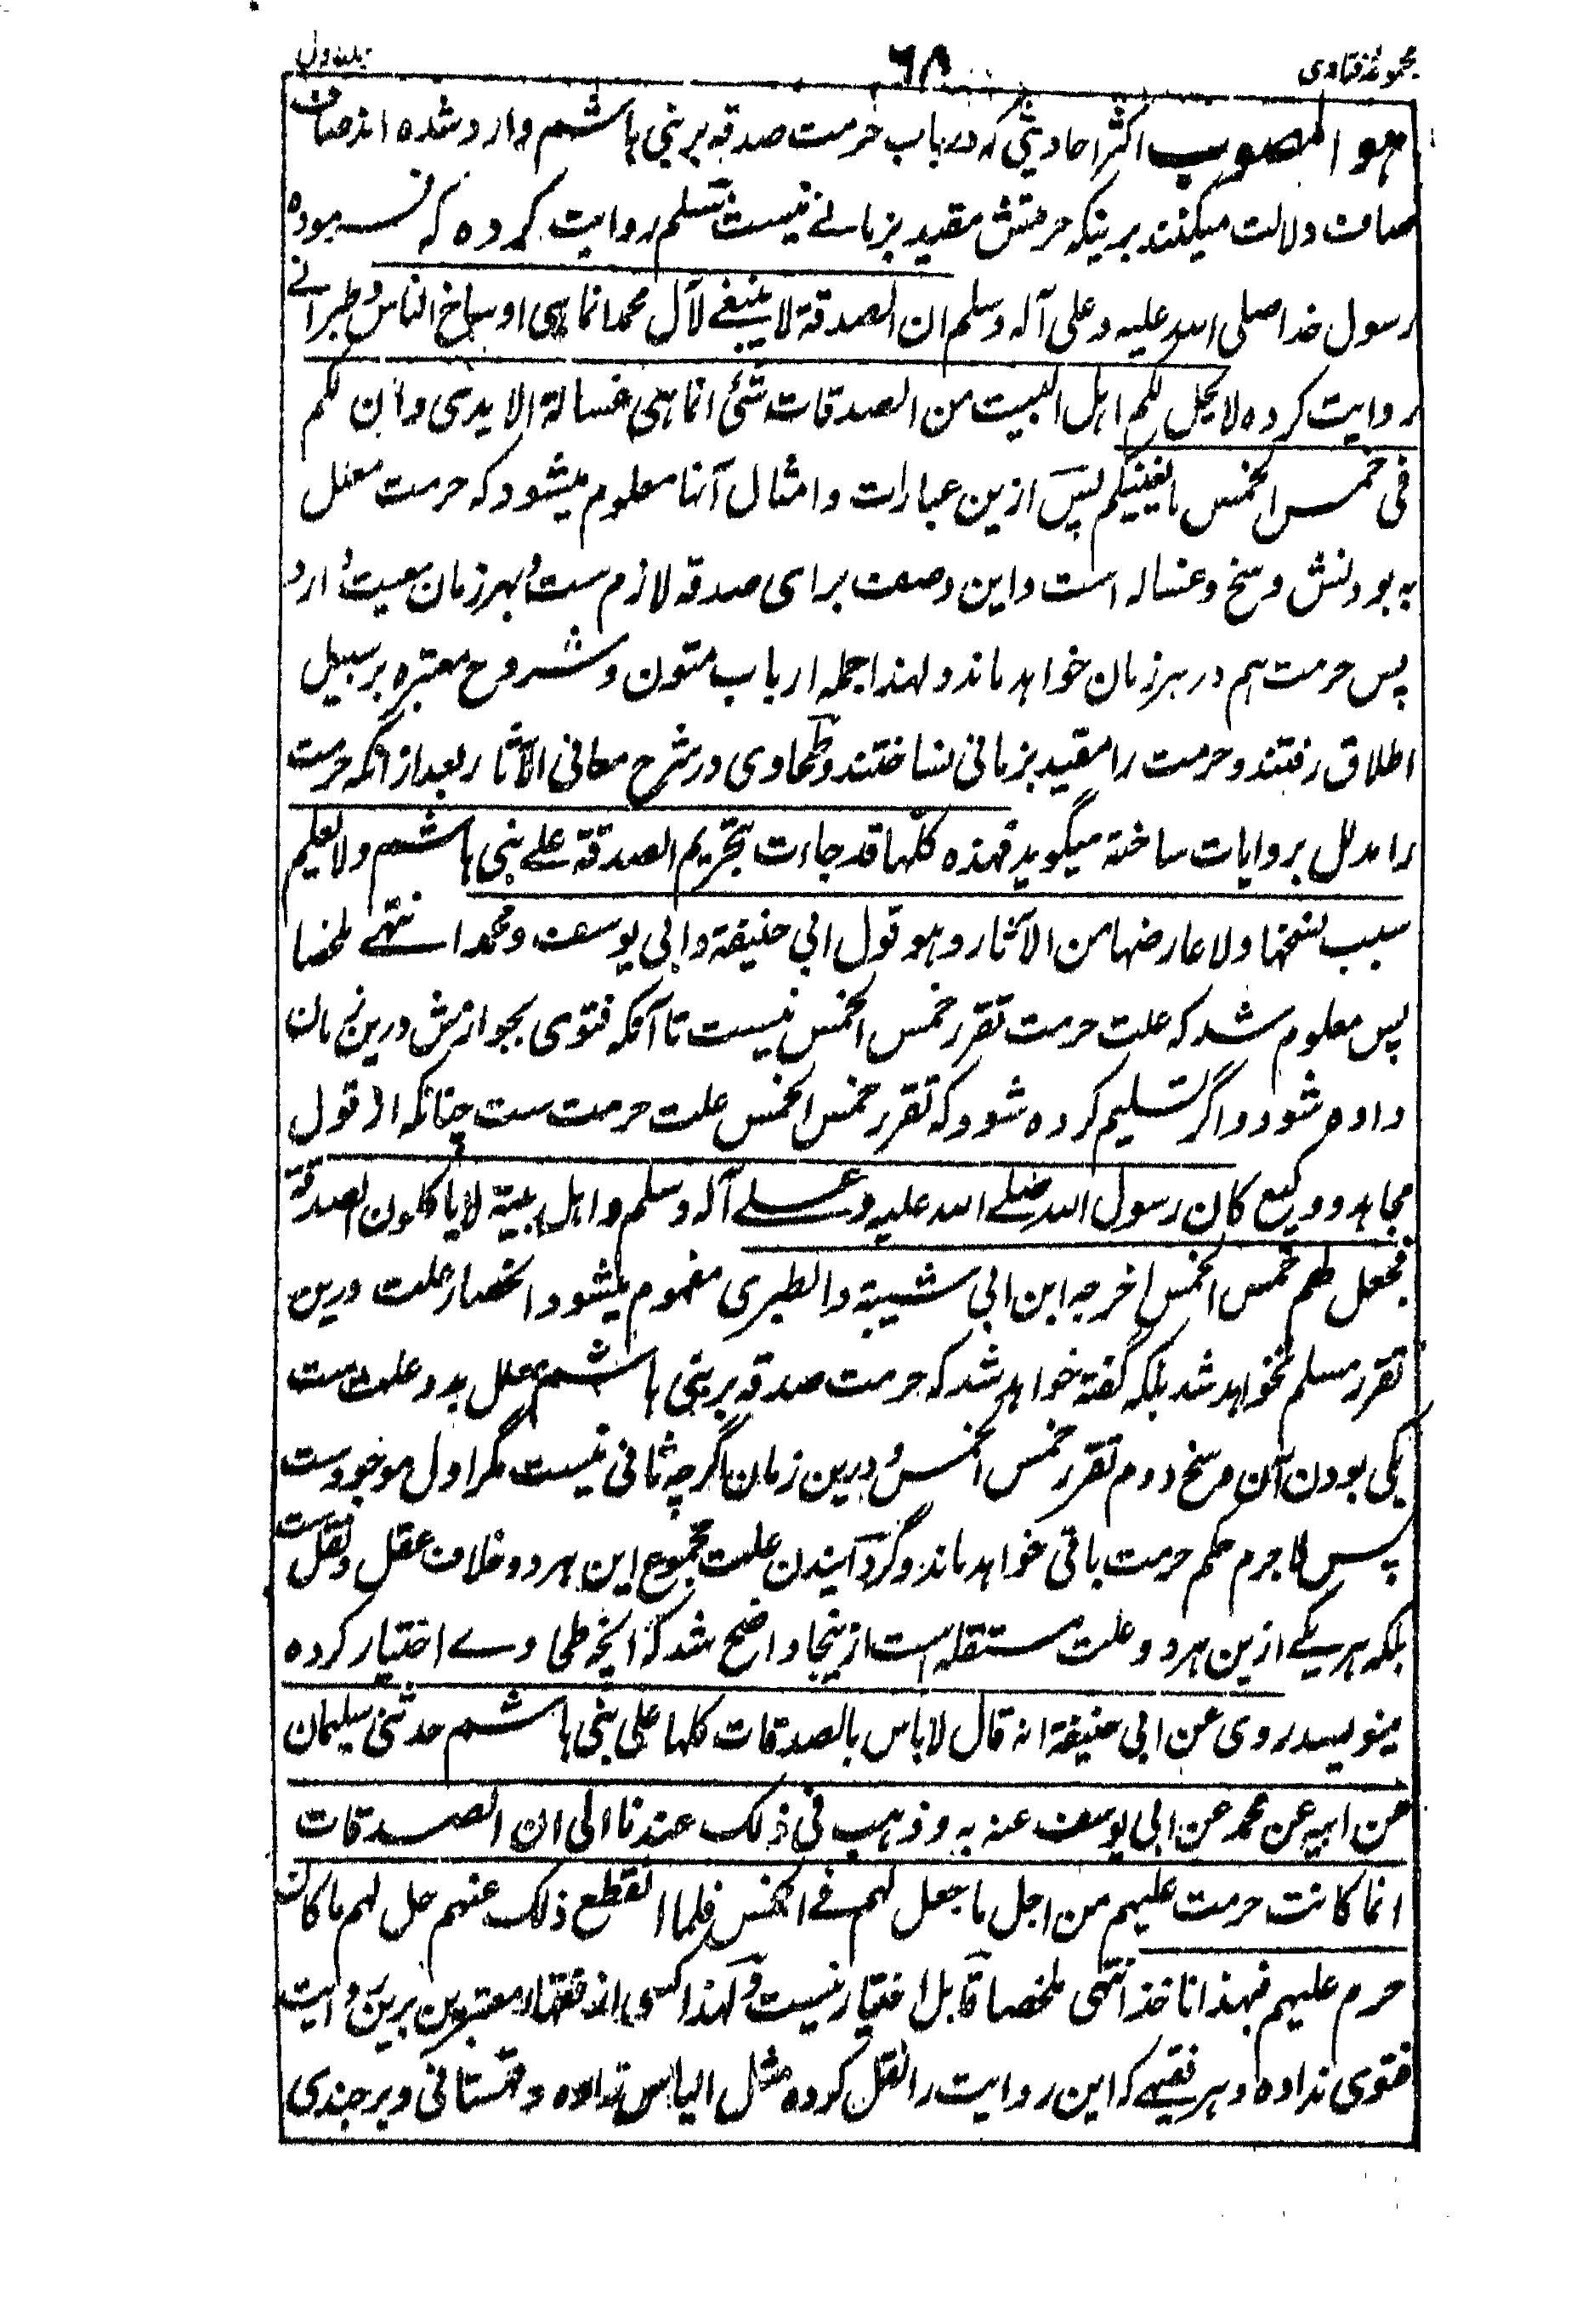 مجموعۂ فتاوی ۶۸ جلد اول
هو المصوب اکثر احادیثی که در باب حرمت صدقه بر بنی هاشم وارد شده اند صاف
صاف دلالت میکنند برینکه حرمتش مقید بزمانے نیست مسلم روایت کرده که فرموده
رسول خدا صلی الله علیه وعلی آله وسلم ان الصدقة لا ینبغے لآل محمد انما هی اوساخ الناس وطبرانے
روایت کرده لا یحل لکم اهل البیت من الصدقات شئ انما هی غسالة الایدی وان لکم
فی خمس الخمس ما یغنیکم پس ازین عبارات و امثال آنها معلوم میشود که حرمت معلل
به بودنش وسخ و غساله است و این وصف برای صدقه لازم ست و بهر زمان معیت دارد
پس حرمت هم در هر زمان خواهد ماند و لهذا جمله ارباب متون و شروح معتبره بر سبیل
اطلاق رفتند و حرمت را مقید بزمانی نساختند و طحاوی در شرح معانی الآثار بعد از آنکه حرمت
را مدلل بروایات ساخته میگوید فهذه کلها قد جاءت بتحریم الصدقة علے بنی هاشم ولا نعلم
سبب نسخها ولا عارضها من الآثار وهو قول ابی حنیفة وابی یوسف ومحمد انتهے ملخصا
پس معلوم شد که علت حرمت تقرر خمس الخمس نیست تا آنکه فتوی بجوازش درین زمان
داده شود و اگر تسلیم کرده شود که تقرر خمس الخمس علت حرمت ست چنانکه از قول
مجاهد و وکیع کان رسول الله صلے الله علیه وعلے آله وسلم واهل بیته لا یاکلون الصدقة
فجعل لهم خمس الخمس اخرجه ابن ابی شیبة والطبری مفهوم میشود انحصار علت درین
تقرر مسلم نخواهد شد بلکه گفته خواهد شد که حرمت صدقه بر بنی هاشم معلل بدو علت ست
یکی بودن آن وسخ دوم تقرر خمس الخمس و درین زمان اگرچه ثانی نیست مگر اول موجودست
پس لا جرم حکم حرمت باقی خواهد ماند و گردانیدن علت مجموع این هر دو خلاف عقل و نقل ست
بلکه هر یکے ازین هر دو علت مستقله است ازینجا واضح شد که آنچه طحاوے اختیار کرده
مینویسد روی عن ابی حنیفة انه قال لا باس بالصدقات کلها علی بنی هاشم حدثنی سلیمان
عن ابیه عن محمد عن ابی یوسف عنه به وذهب فی ذلک عندنا الی ان الصدقات
انما کانت حرمت علیهم من اجل ما جعل لهم فے الخمس فلما انقطع ذلک عنهم حل لهم ما کان
حرم علیهم فبهذا ناخذ انتهی ملخصا قابل اختیار نیست و لهذا کسی از فقهاء معتبرین برین روایت
فتوی نداده و هر فقیهے که این روایت را نقل کرده مثل الیاس زاده و قهستانی و برجندی